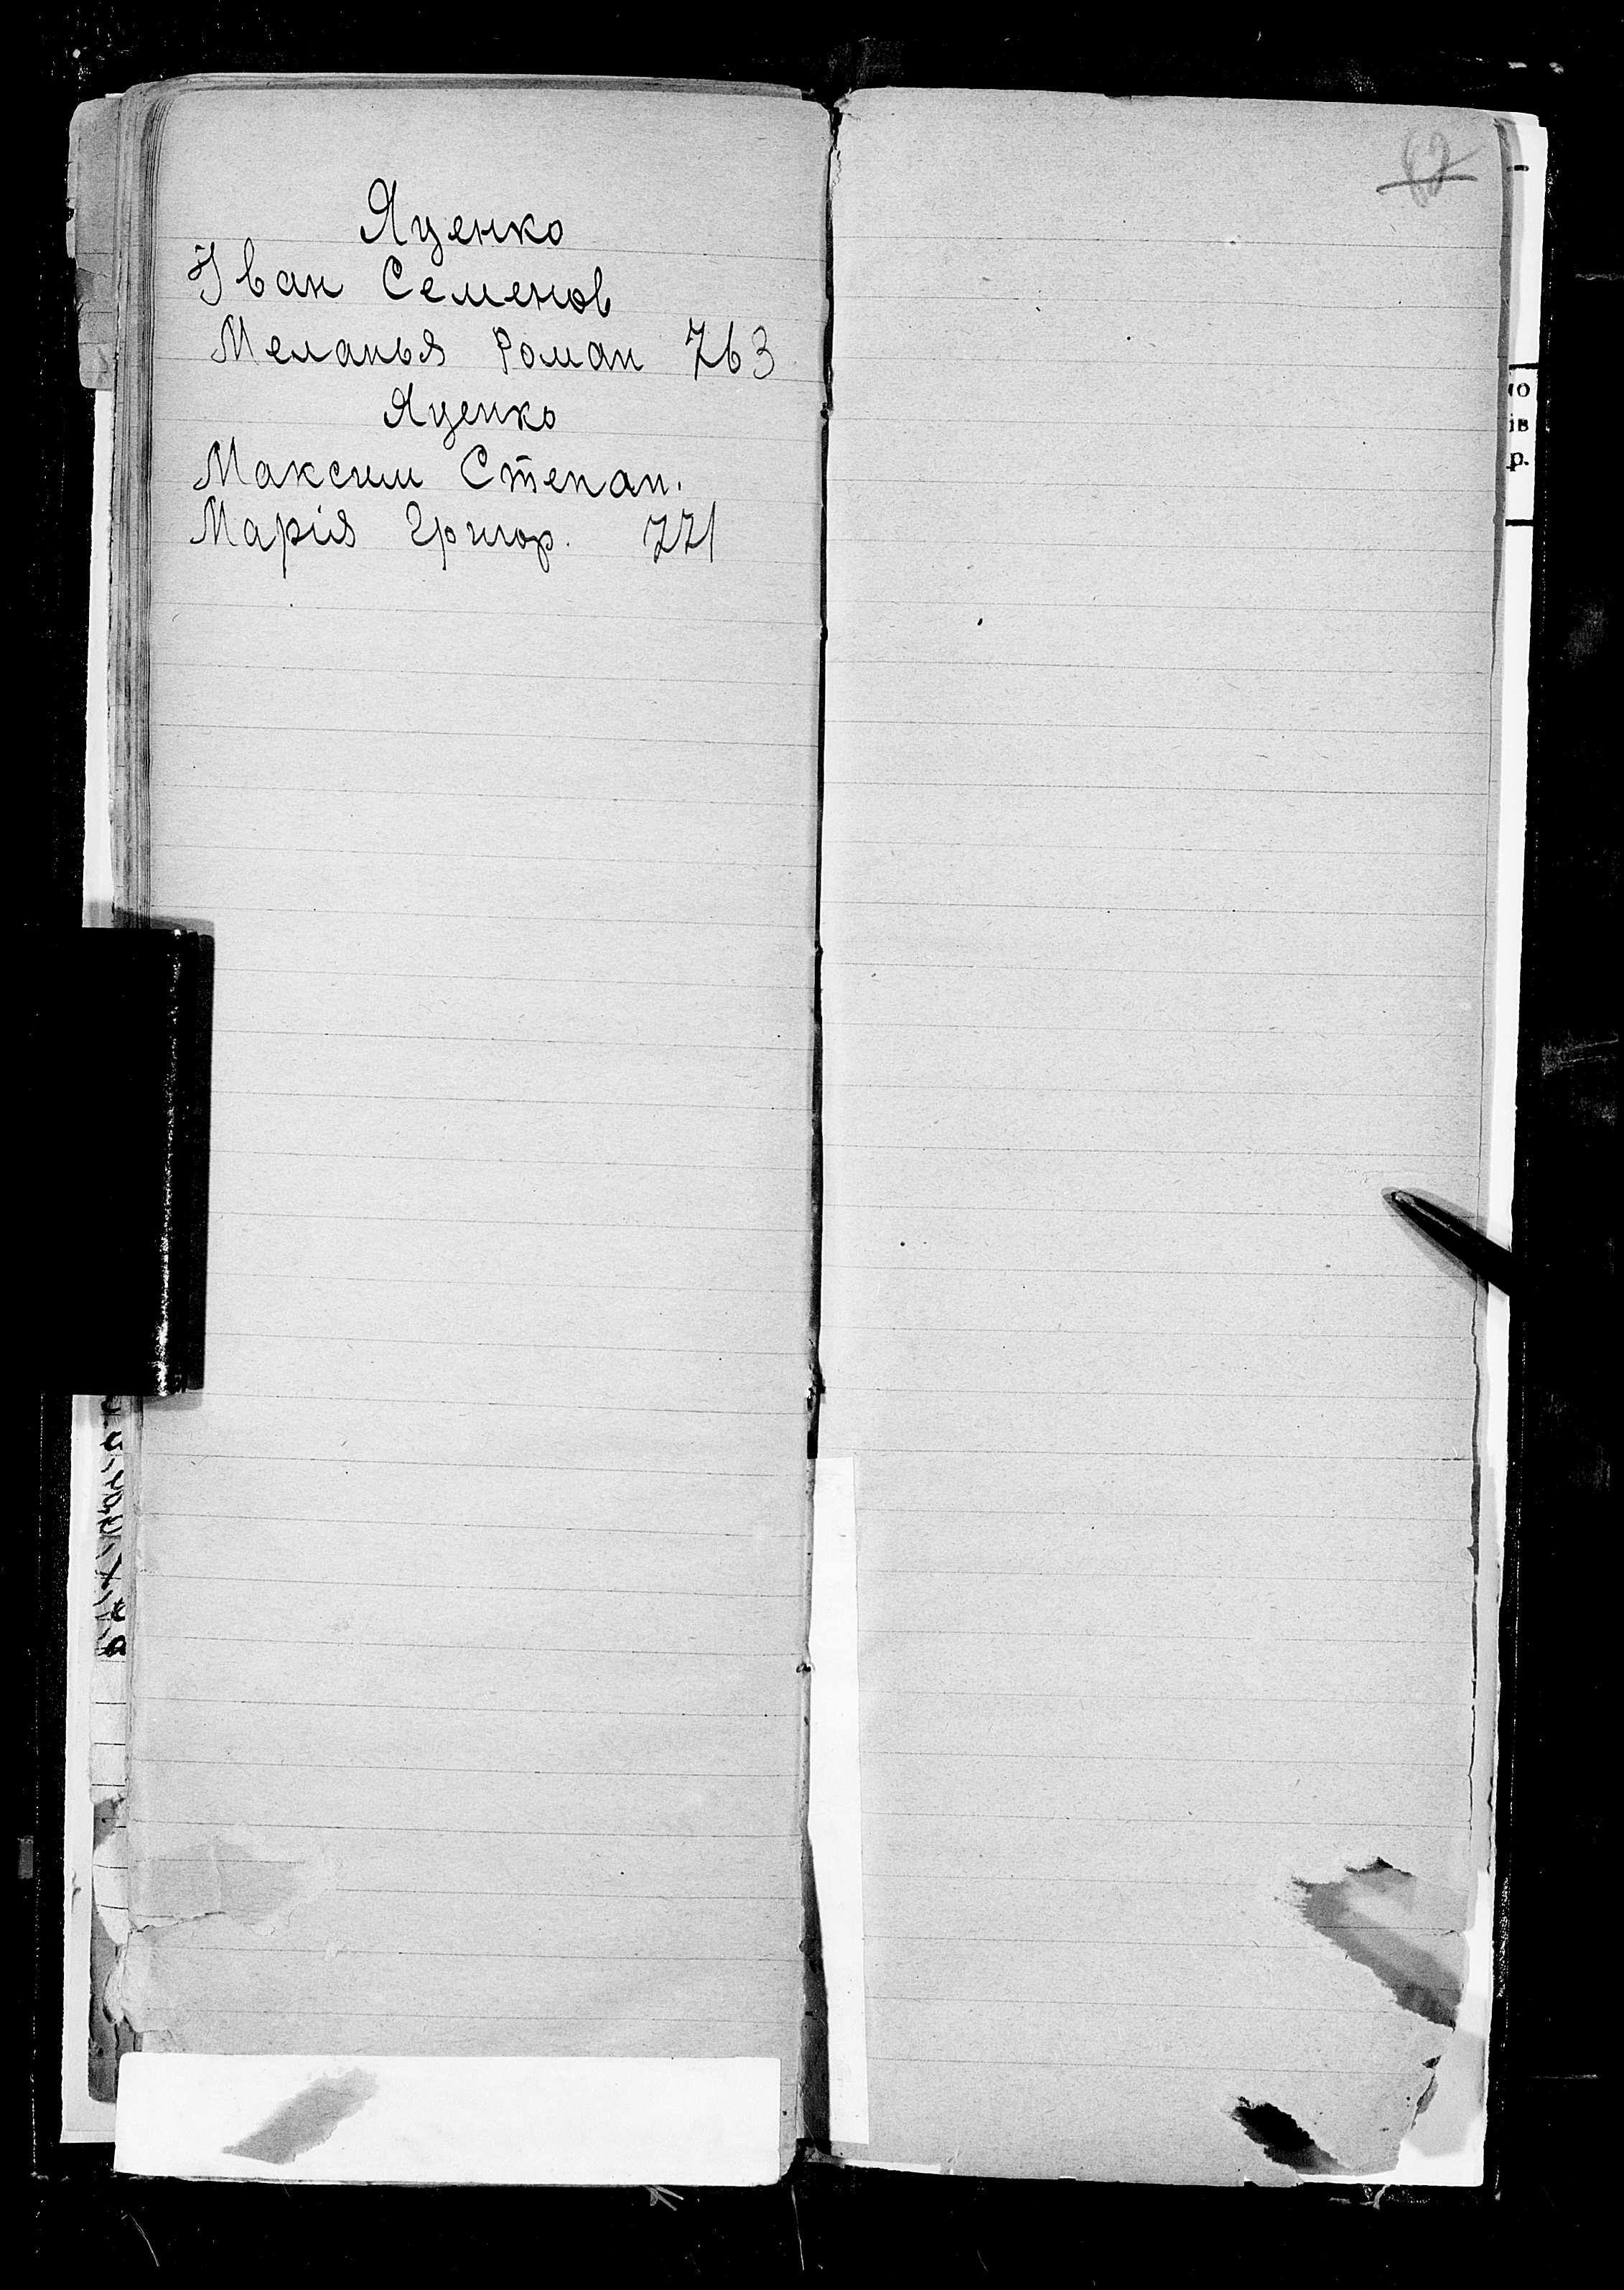 Яценко
Іван Семенов
Меланья Роман 763
Яценко
Максим Степан.
Марія Григор. 771
62
ів
р.